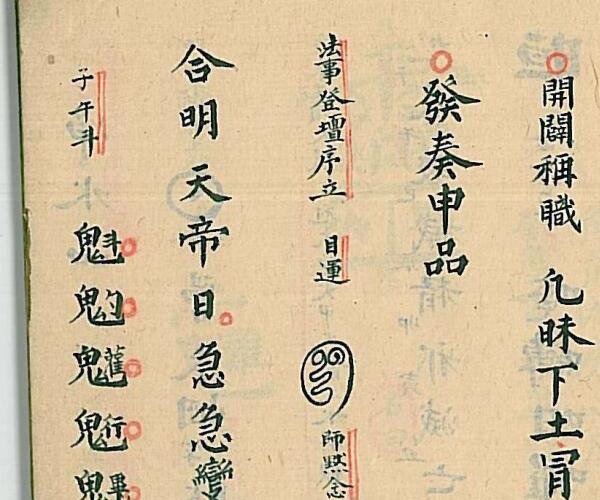 開闢稱職 凡昧下土冐
發奏申品
法事登壇序立 目運 師黙念
合明天帝日急急
子午斗 魁魡